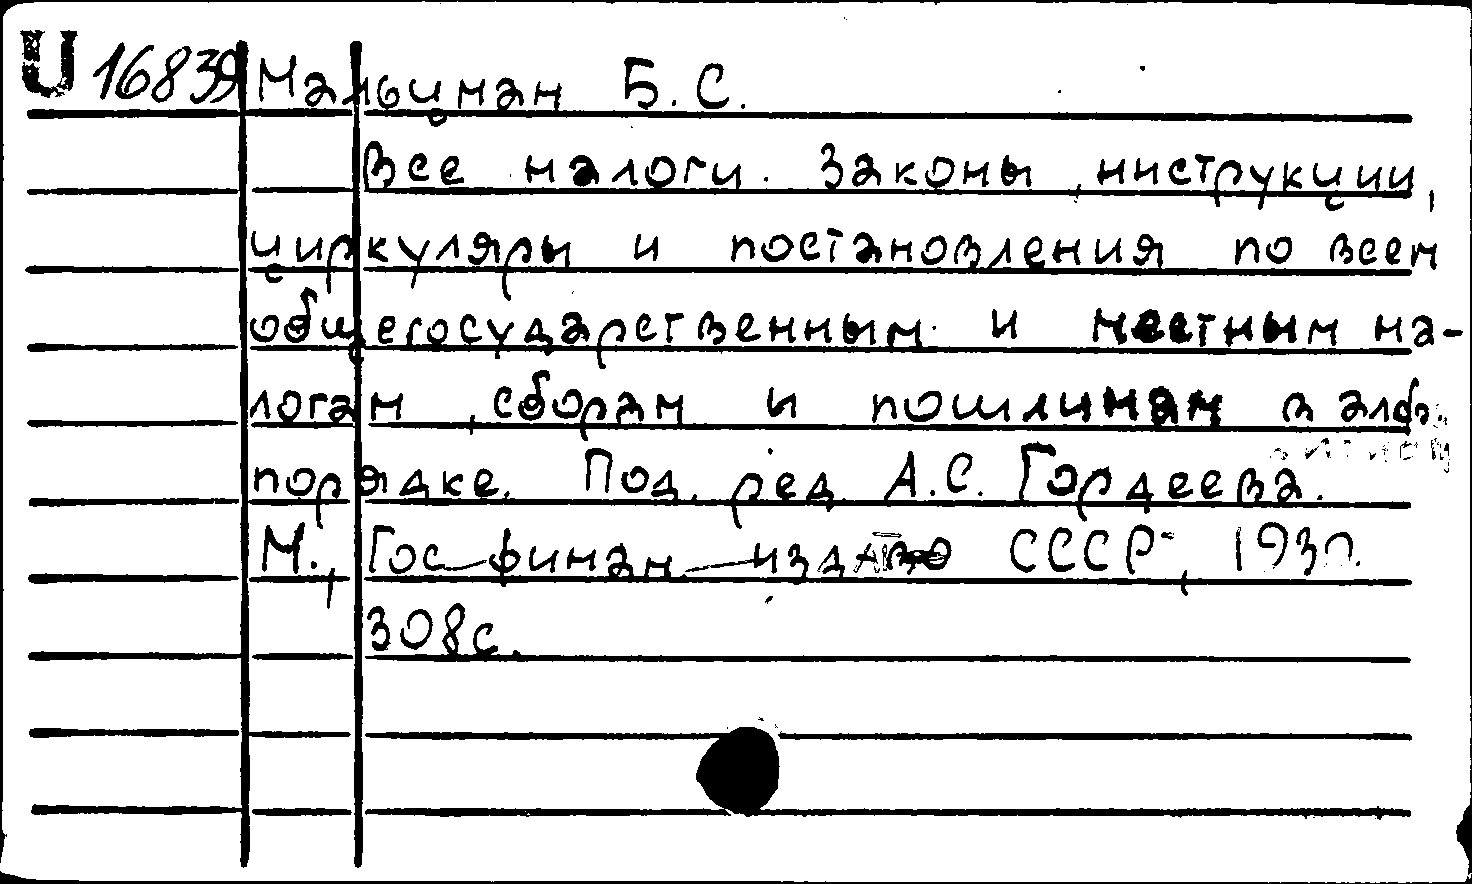 U 16839 Мальцман Б. С.
Все налоги. Законы, инструкции,
циркуляры и постановления по всем
общегосударственным и местным на-
логам, сборам и пошлинам в алф.
порядке. Под. ред. А.С. Гордеева.
М., Гос. финан. изд-во СССР, 1930.
308с.